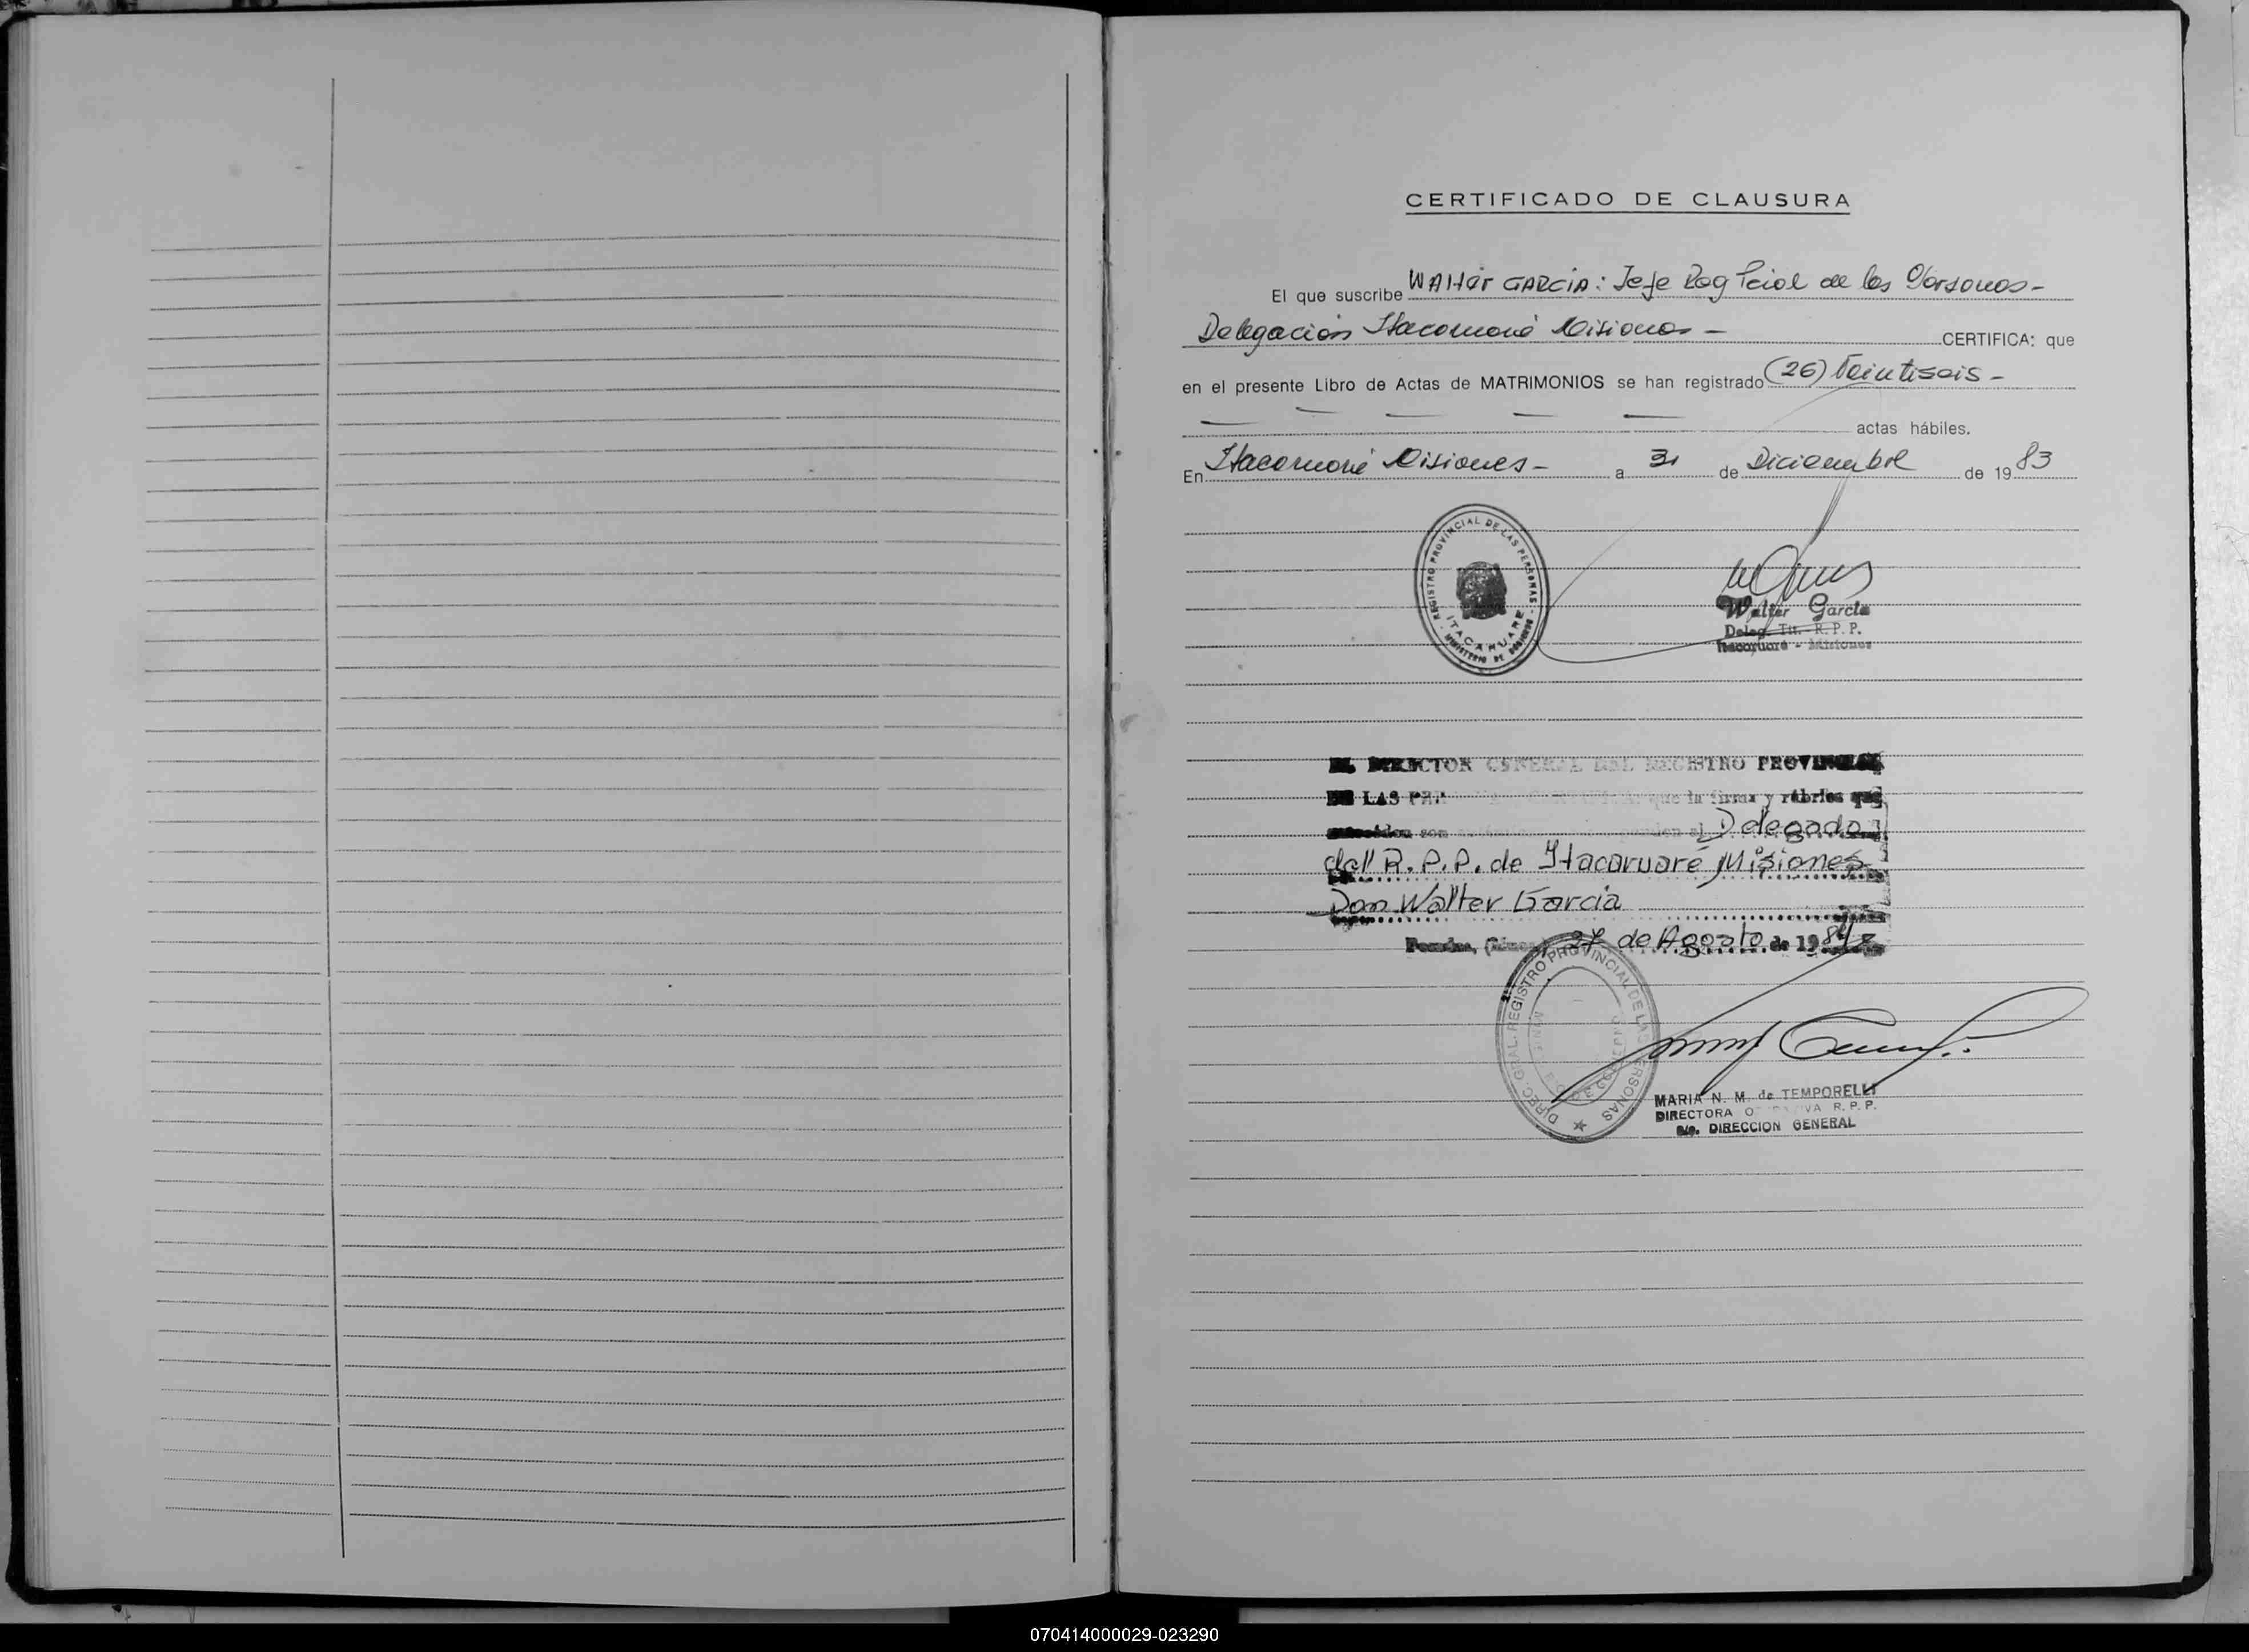 CERTIFICADO DE CLAUSURA
El que suscribe WAlter GARCIA: Jefe Reg Pcial de las Personas -
Delegación Itacaruaré Misiones - CERTIFICA: que
en el presente Libro de Actas de MATRIMONIOS se han registrado (26) Veintiseis -
actas hábiles.
En Itacaruaré Misiones - a 31 de Diciembre de 1983
REGISTRO PROVINCIAL DE LAS PERSONAS
ITACARUARE
MINISTERIO DE GOBIERNO
Walter Garcia
Deleg. Tit. R. P. P.
Itacaruaré - Misiones
EL DIRECTOR GENERAL DEL REGISTRO PROVINCIAL
DE LAS que la firma y rúbrica que
anteceden son al Delegado
del R. P. P. de Itacaruaré Misiones
Don Walter Garcia
Posadas, 27 de Agosto de 1984
DIREC. GRAL. REGISTRO PROVINCIAL DE LAS PERSONAS
MARIA N. M. de TEMPORELLI
DIRECTORA R. P. P.
DIRECCION GENERAL
070414000029-023290